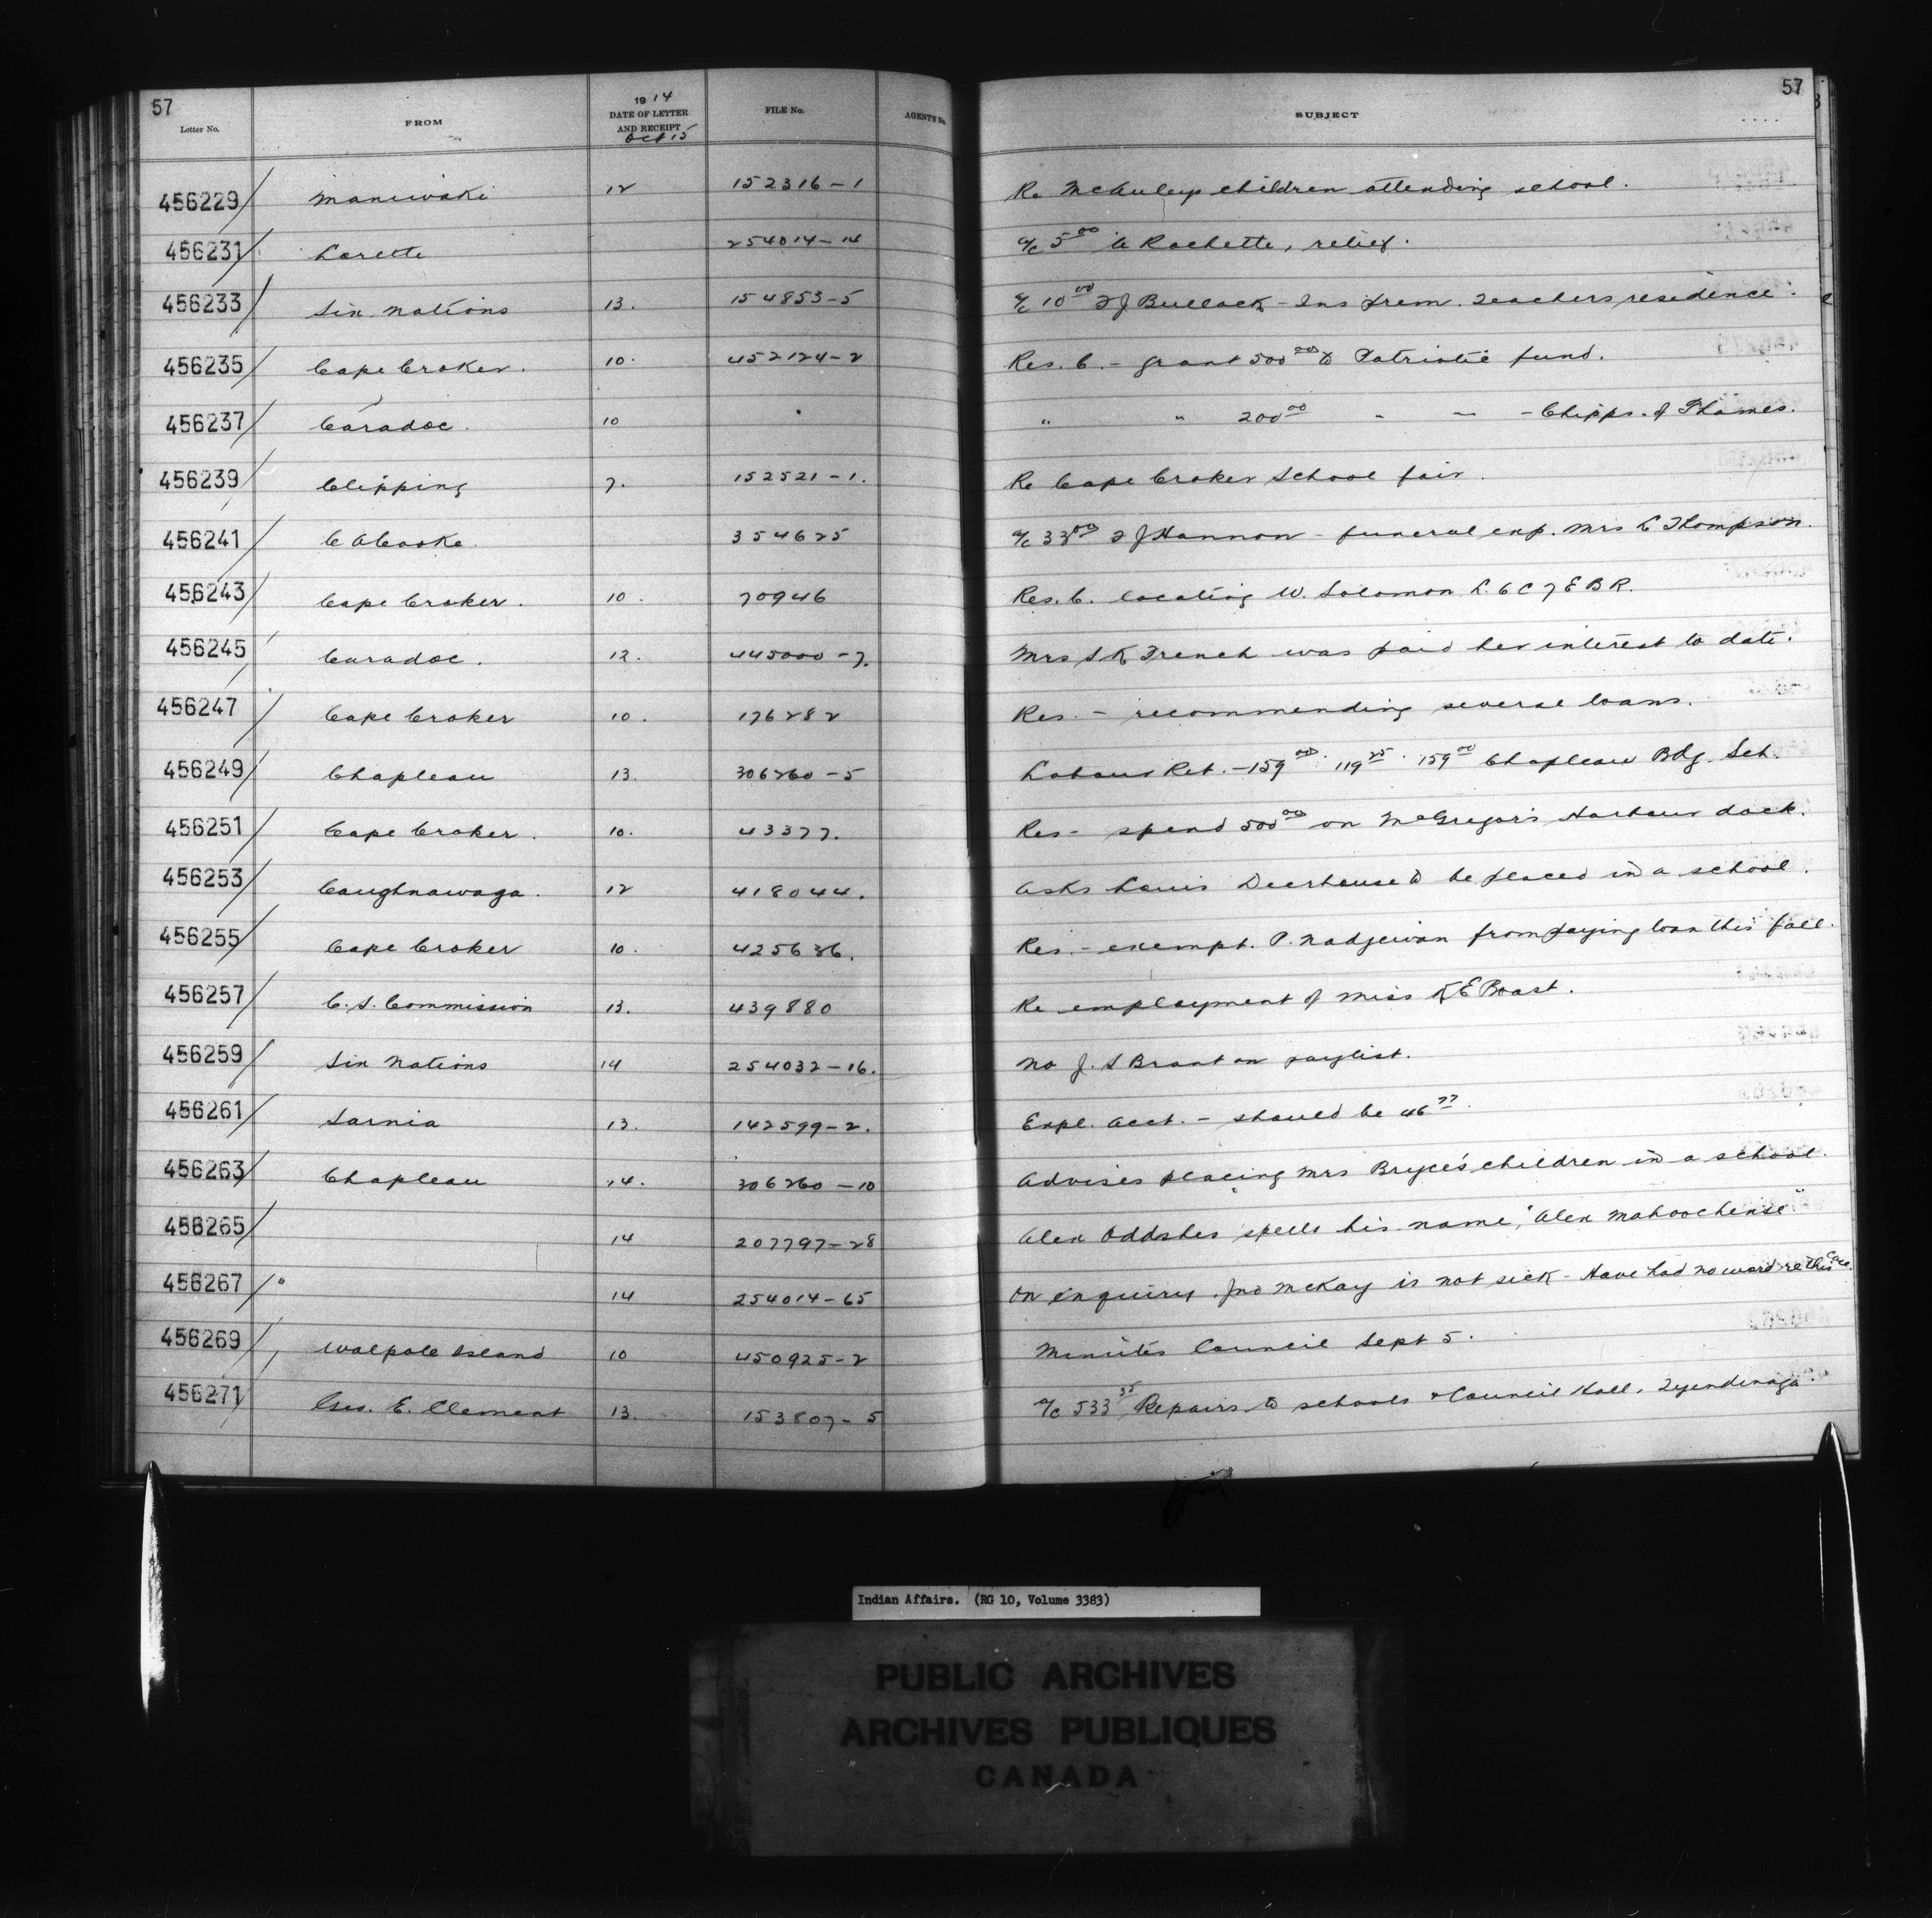 57 57
Letter No. FROM 1914 DATE OF LETTER AND RECEIPT Oct 15 FILE No. AGENT'S No. SUBJECT
456229 Maniwaki 12 152316-1 Re McAuleys children attending school.
456231 Lorette 254014-14 a/c 5.00 A Rochette, relief.
456233 Six Nations 13. 154853-5 a/c 10.00 F J Bullock - Ins prem. Teachers residence.
456235 Cape Croker. 10. 452124-2 Res. C. - grant 500.00 to Patriotic fund.
456237 Caradoc. 10 " " " 200.00 " " - Chipps. of Thames.
456239 Clipping 7. 152521-1. Re Cape Croker School fair.
456241 C A Cooke. 354625 a/c 33.00 F J Hannon - funeral exp. Mrs L Thompson.
456243 Cape Croker. 10. 70946 Res. C. locating W. Solomon L. 6 C 7 E B R.
456245 Caradoc. 12. 445000-7. Mrs S K French was paid her interest to date.
456247 Cape Croker 10. 176282 Res. - recommending several loans.
456249 Chapleau 13. 306260-5 Labour Ret. - 159.00 . 119.25 . 159.00 Chapleau Bdg. Sch.
456251 Cape Croker. 10. 43377. Res - spend 500.00 on McGregor's Harbour dock.
456253 Caughnawaga. 12 418044. Asks Louis Deerhouse to be placed in a school.
456255 Cape Croker 10. 425636. Res. - exempt. P. Nadjewan from paying loan this fall.
456257 C. S. Commission 13. 439880 Re employment of Miss K E Boast.
456259 Six Nations 14 254032-16. No J. S Brant on paylist.
456261 Sarnia 13. 142599-2. Expl. acct. - should be 46.77.
456263 Chapleau 14. 306260-10 Advises placing Mrs Bryce's children in a school.
456265 14 207797-28 Alex Oddshes spells his name, "Alex Mahoochense"
456267 " 14 254014-65 On enquiry. Jno McKay is not sick - Have had no word re this case.
456269 Walpole Island 10 450925-2 Minutes Council Sept 5.
456271 Geo. E. Clement 13. 153807-5 a/c 533.35 Repairs to schools & Council Hall, Tyendinaga.
Indian Affairs. (RG 10, Volume 3383)
PUBLIC ARCHIVES
ARCHIVES PUBLIQUES
CANADA